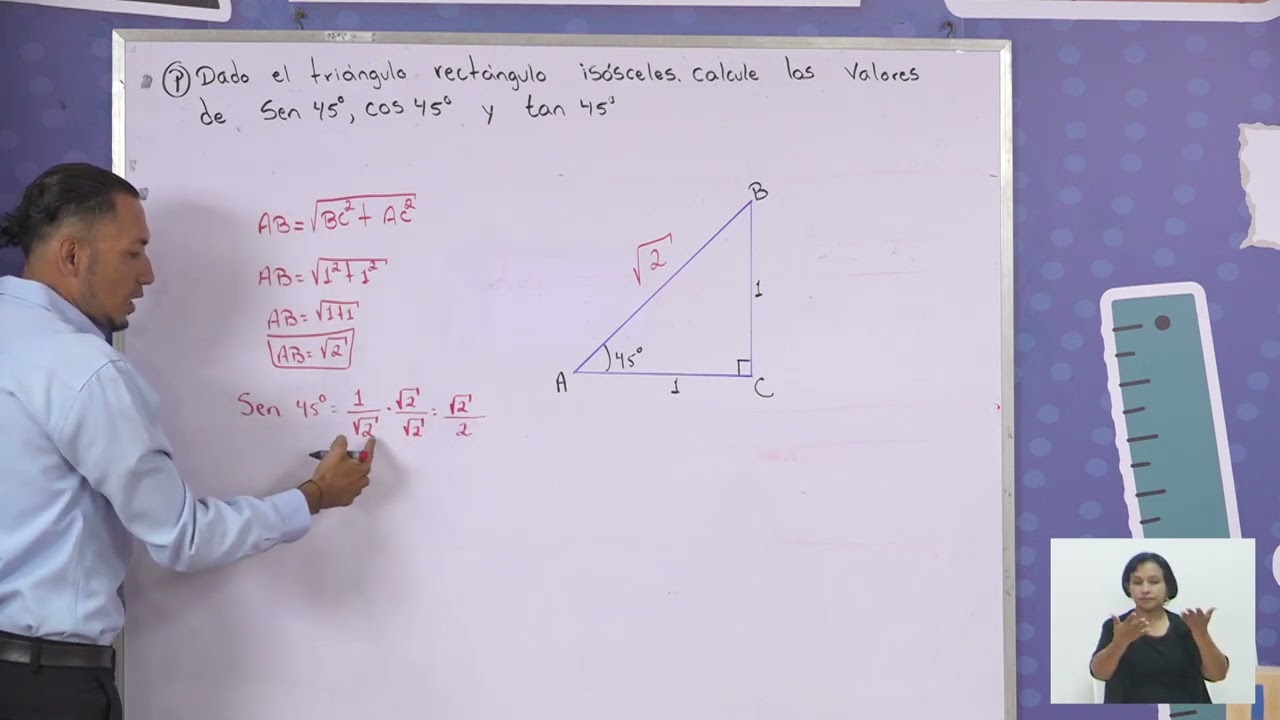 Ⓟ Dado el triángulo rectángulo isósceles. Calcule los Valores
de Sen 45°, cos 45° y tan 45°
AB = √BC² + AC²
AB = √1² + 1²
AB = √1+1
AB = √2
Sen 45° = 1/√2 · √2/√2 = √2/2
B
√2
1
45°
A
1
C